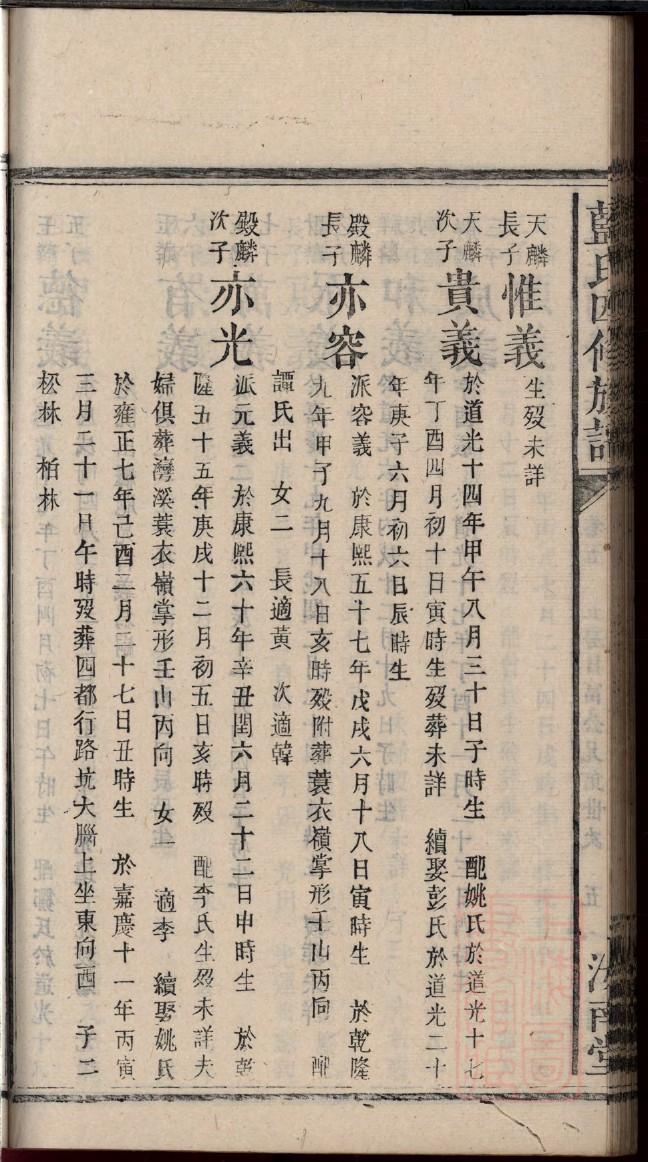 藍氏四修族譜
汝南堂
天麟長子 惟義 生歿未詳
天麟次子 貴義 於道光十四年甲午八月三十日子時生 配姚氏於道光十七
年丁酉四月初十日寅時生歿葬未詳 續娶彭氏於道光二十
年庚子六月初六日辰時生
殿麟長子 亦容 派容義 於康熙五十七年戊戌六月十八日寅時生 於乾隆
九年甲子九月十八日亥時歿附葬蓑衣嶺掌形壬山丙向 配
譚氏出 女二 長適黃 次適韓
殿麟次子 亦光 派元義 於康熙六十年辛丑閏六月二十二日申時生 於乾
隆五十五年庚戌十二月初五日亥時歿 配李氏生歿未詳夫
婦俱葬灣溪蓑衣嶺掌形壬山丙向 女一 適李 續娶姚氏
於雍正七年己酉二月二十七日丑時生 於嘉慶十一年丙寅
三月二十一日午時歿葬四都行路坑大腦上坐東向西 子二
松林 栢林